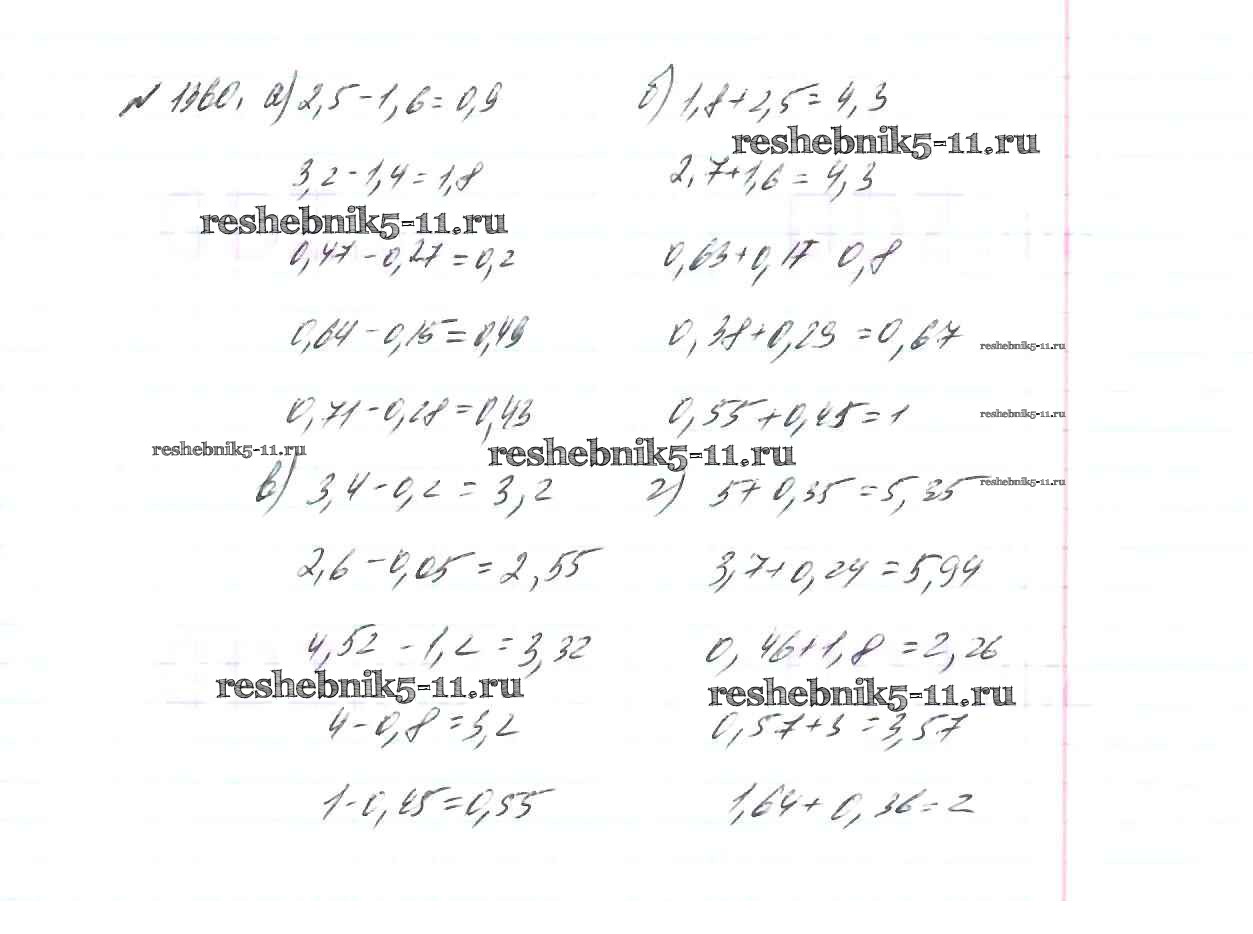 № 1360. а) 2,5 - 1,6 = 0,9 б) 1,8 + 2,5 = 4,3
reshebnik5-11.ru
3,2 - 1,4 = 1,8 2,7 + 1,6 = 4,3
reshebnik5-11.ru
0,47 - 0,27 = 0,2 0,63 + 0,17 0,8
0,64 - 0,15 = 0,49 0,38 + 0,29 = 0,67 reshebnik5-11.ru
0,71 - 0,28 = 0,43 0,55 + 0,45 = 1 reshebnik5-11.ru
reshebnik5-11.ru reshebnik5-11.ru
в) 3,4 - 0,2 = 3,2 г) 5 + 0,35 = 5,35 reshebnik5-11.ru
2,6 - 0,05 = 2,55 3,7 + 0,24 = 5,94
4,52 - 1,2 = 3,32 0,46 + 1,8 = 2,26
reshebnik5-11.ru reshebnik5-11.ru
4 - 0,8 = 3,2 0,57 + 3 = 3,57
1 - 0,45 = 0,55 1,64 + 0,36 = 2